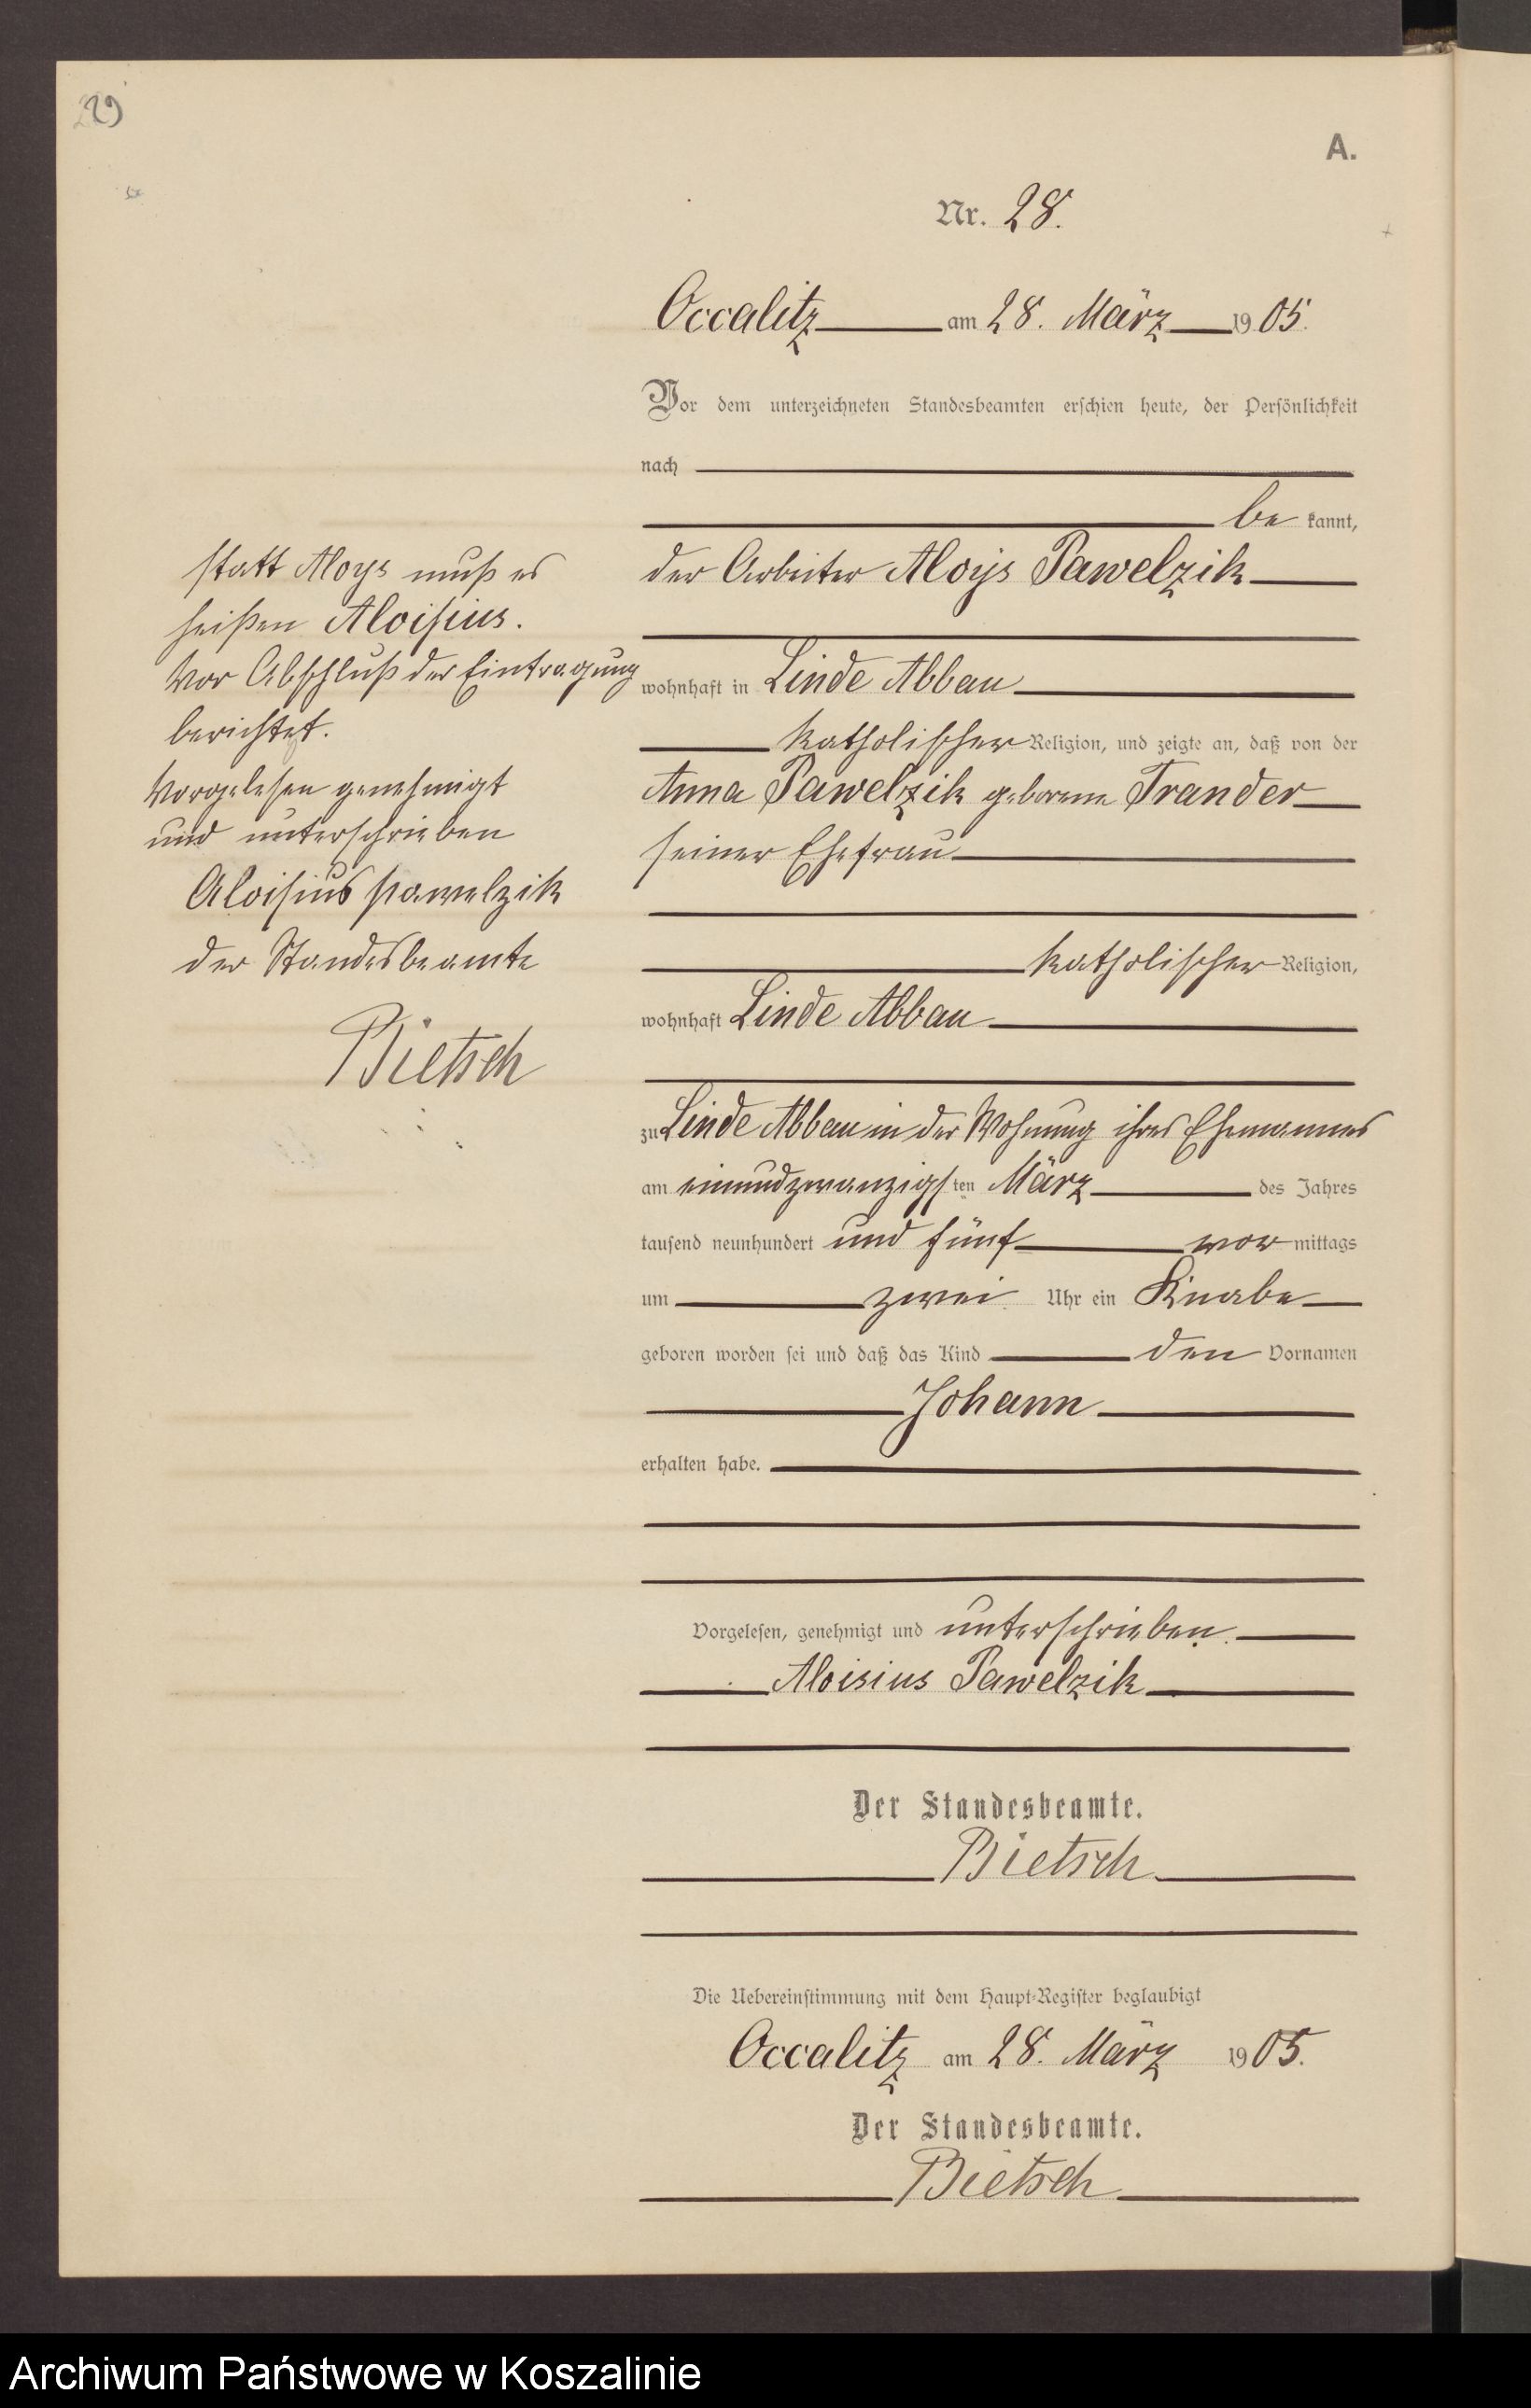 29
A.
Nr. 28.
Occalitz am 28. März 1905.
Vor dem unterzeichneten Standesbeamten erschien heute, der Persönlichkeit
nach
be kannt,
der Arbeiter Aloys Pawelzik
wohnhaft in Linde Abbau
katholischer Religion, und zeigte an, daß von der
Anna Pawelzik geborene Trander
seiner Ehefrau
katholischer Religion,
wohnhaft Linde Abbau
zu Linde Abbau in der Wohnung ihres Ehemannes
am einundzwanzigsten März des Jahres
tausend neunhundert und fünf vor mittags
um zwei Uhr ein Knabe
geboren worden sei und daß das Kind den Vornamen
Johann
erhalten habe.
Vorgelesen, genehmigt und unterschrieben.
Aloisius Pawelzik
Der Standesbeamte.
Bietsch
Die Uebereinstimmung mit dem Haupt-Register beglaubigt
Occalitz am 28. März 1905.
Der Standesbeamte.
Bietsch
statt Aloys muß es
heißen Aloisius.
Vor Abschluß der Eintragung
berichtet.
Vorgelesen genehmigt
und unterschrieben
Aloisius Pawelzik
der Standesbeamte
Bietsch
Archiwum Państwowe w Koszalinie